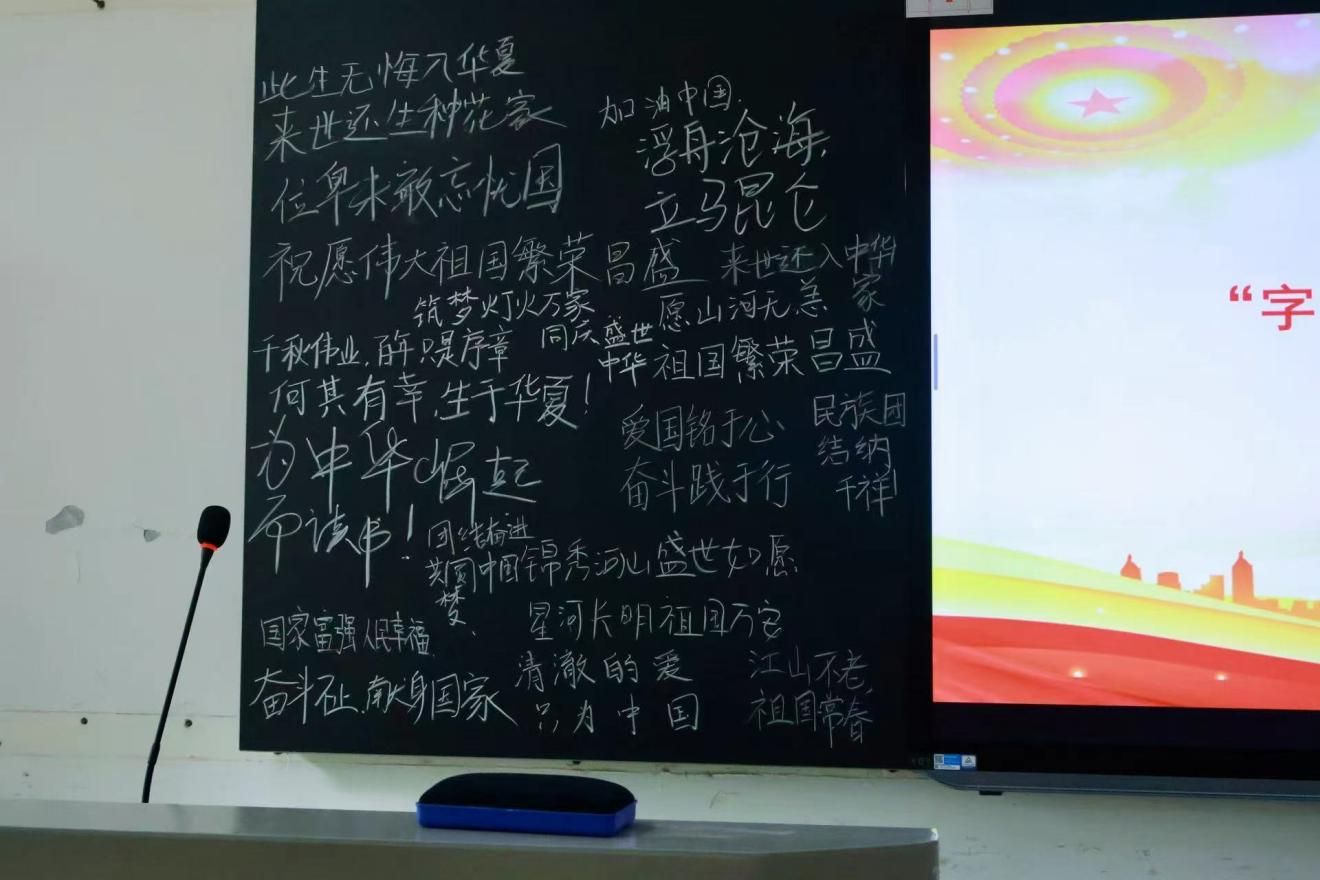 此生无悔入华夏
来世还生种花家
位卑未敢忘忧国
加油中国
浮舟沧海
立马昆仑
祝愿伟大祖国繁荣昌盛
来世还入中华
家
筑梦灯火万家
同庆盛世
中华
愿山河无恙
祖国繁荣昌盛
千秋伟业,百年只是序章
何其有幸,生于华夏!
爱国铭于心
奋斗践于行
民族团
结纳
千祥
为中华崛起
而读书!
团结奋进
共圆中国
梦
锦秀河山盛世如愿
国家富强人民幸福
星河长明祖国万安
奋斗不止,献身国家
清澈的爱
只为中国
江山不老
祖国常春
“字